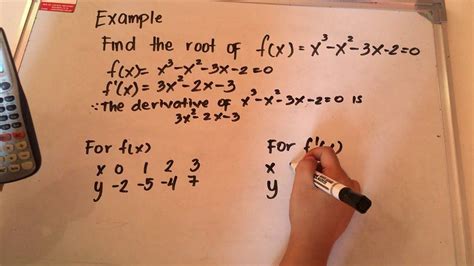 Example
Find the root of f(x) = x³-x²-3x-2=0
f(x) = x³-x²-3x-2=0
f'(x) = 3x²-2x-3
∵The derivative of x³-x²-3x-2=0 is
3x²-2x-3
For f(x)
x 0 1 2 3
y -2 -5 -4 7
For f'(x)
x
y